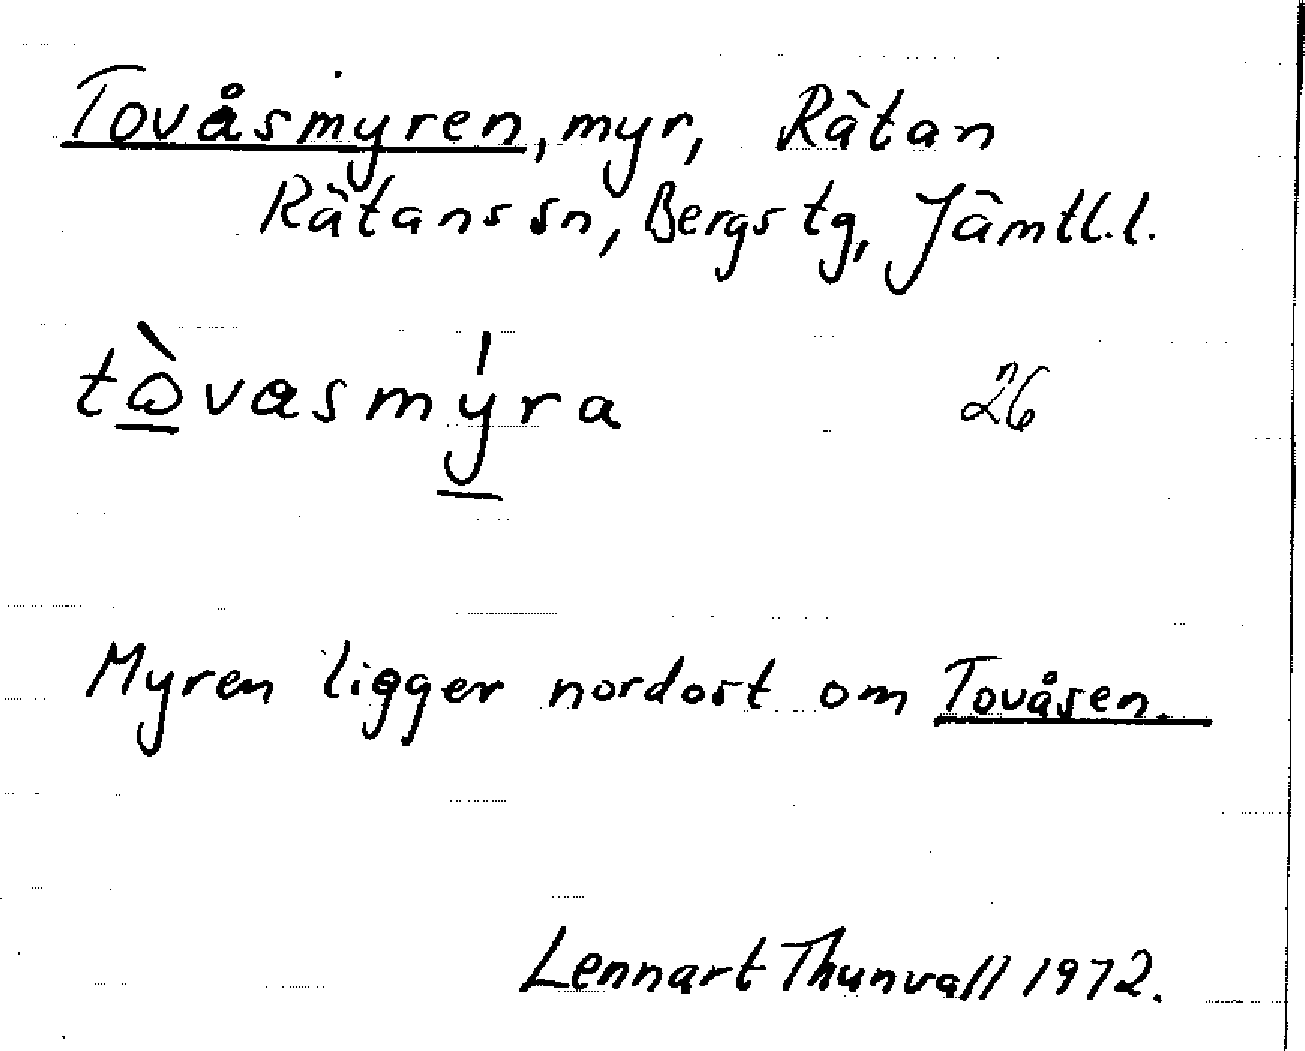 Tovåsmyren, myr, Rätan
Rätans sn, Bergs tg, Jämtl.l.
tò̲vasmý̲ra 26
Myren ligger nordost om Tovåsen.
Lennart Thunvall 1972.